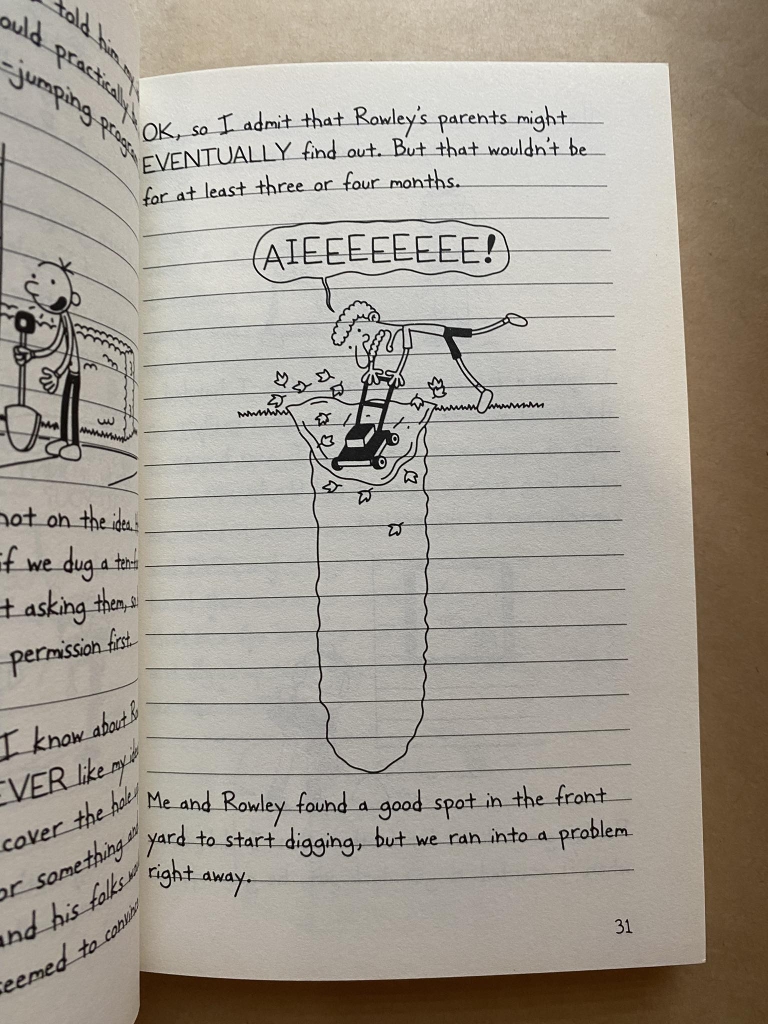 told him my
ould practically
-jumping progra
not on the idea.
if we dug a ten-
t asking them, s
permission first.
I know about R
EVER like my id
cover the hole
or something an
and his folks
seemed to convin
OK, so I admit that Rowley's parents might
EVENTUALLY find out. But that wouldn't be
for at least three or four months.
AIEEEEEEEE!
Me and Rowley found a good spot in the front
yard to start digging, but we ran into a problem
right away.
31